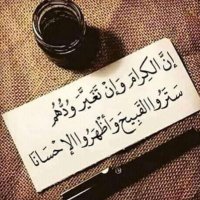 إنَّ الكِرَامَ وَإنْ تَغَيَّرَ وُدُّهُمُ
سَتَرُوا القَبِيحَ وَأظْهَرُوا الإحْسَانَا